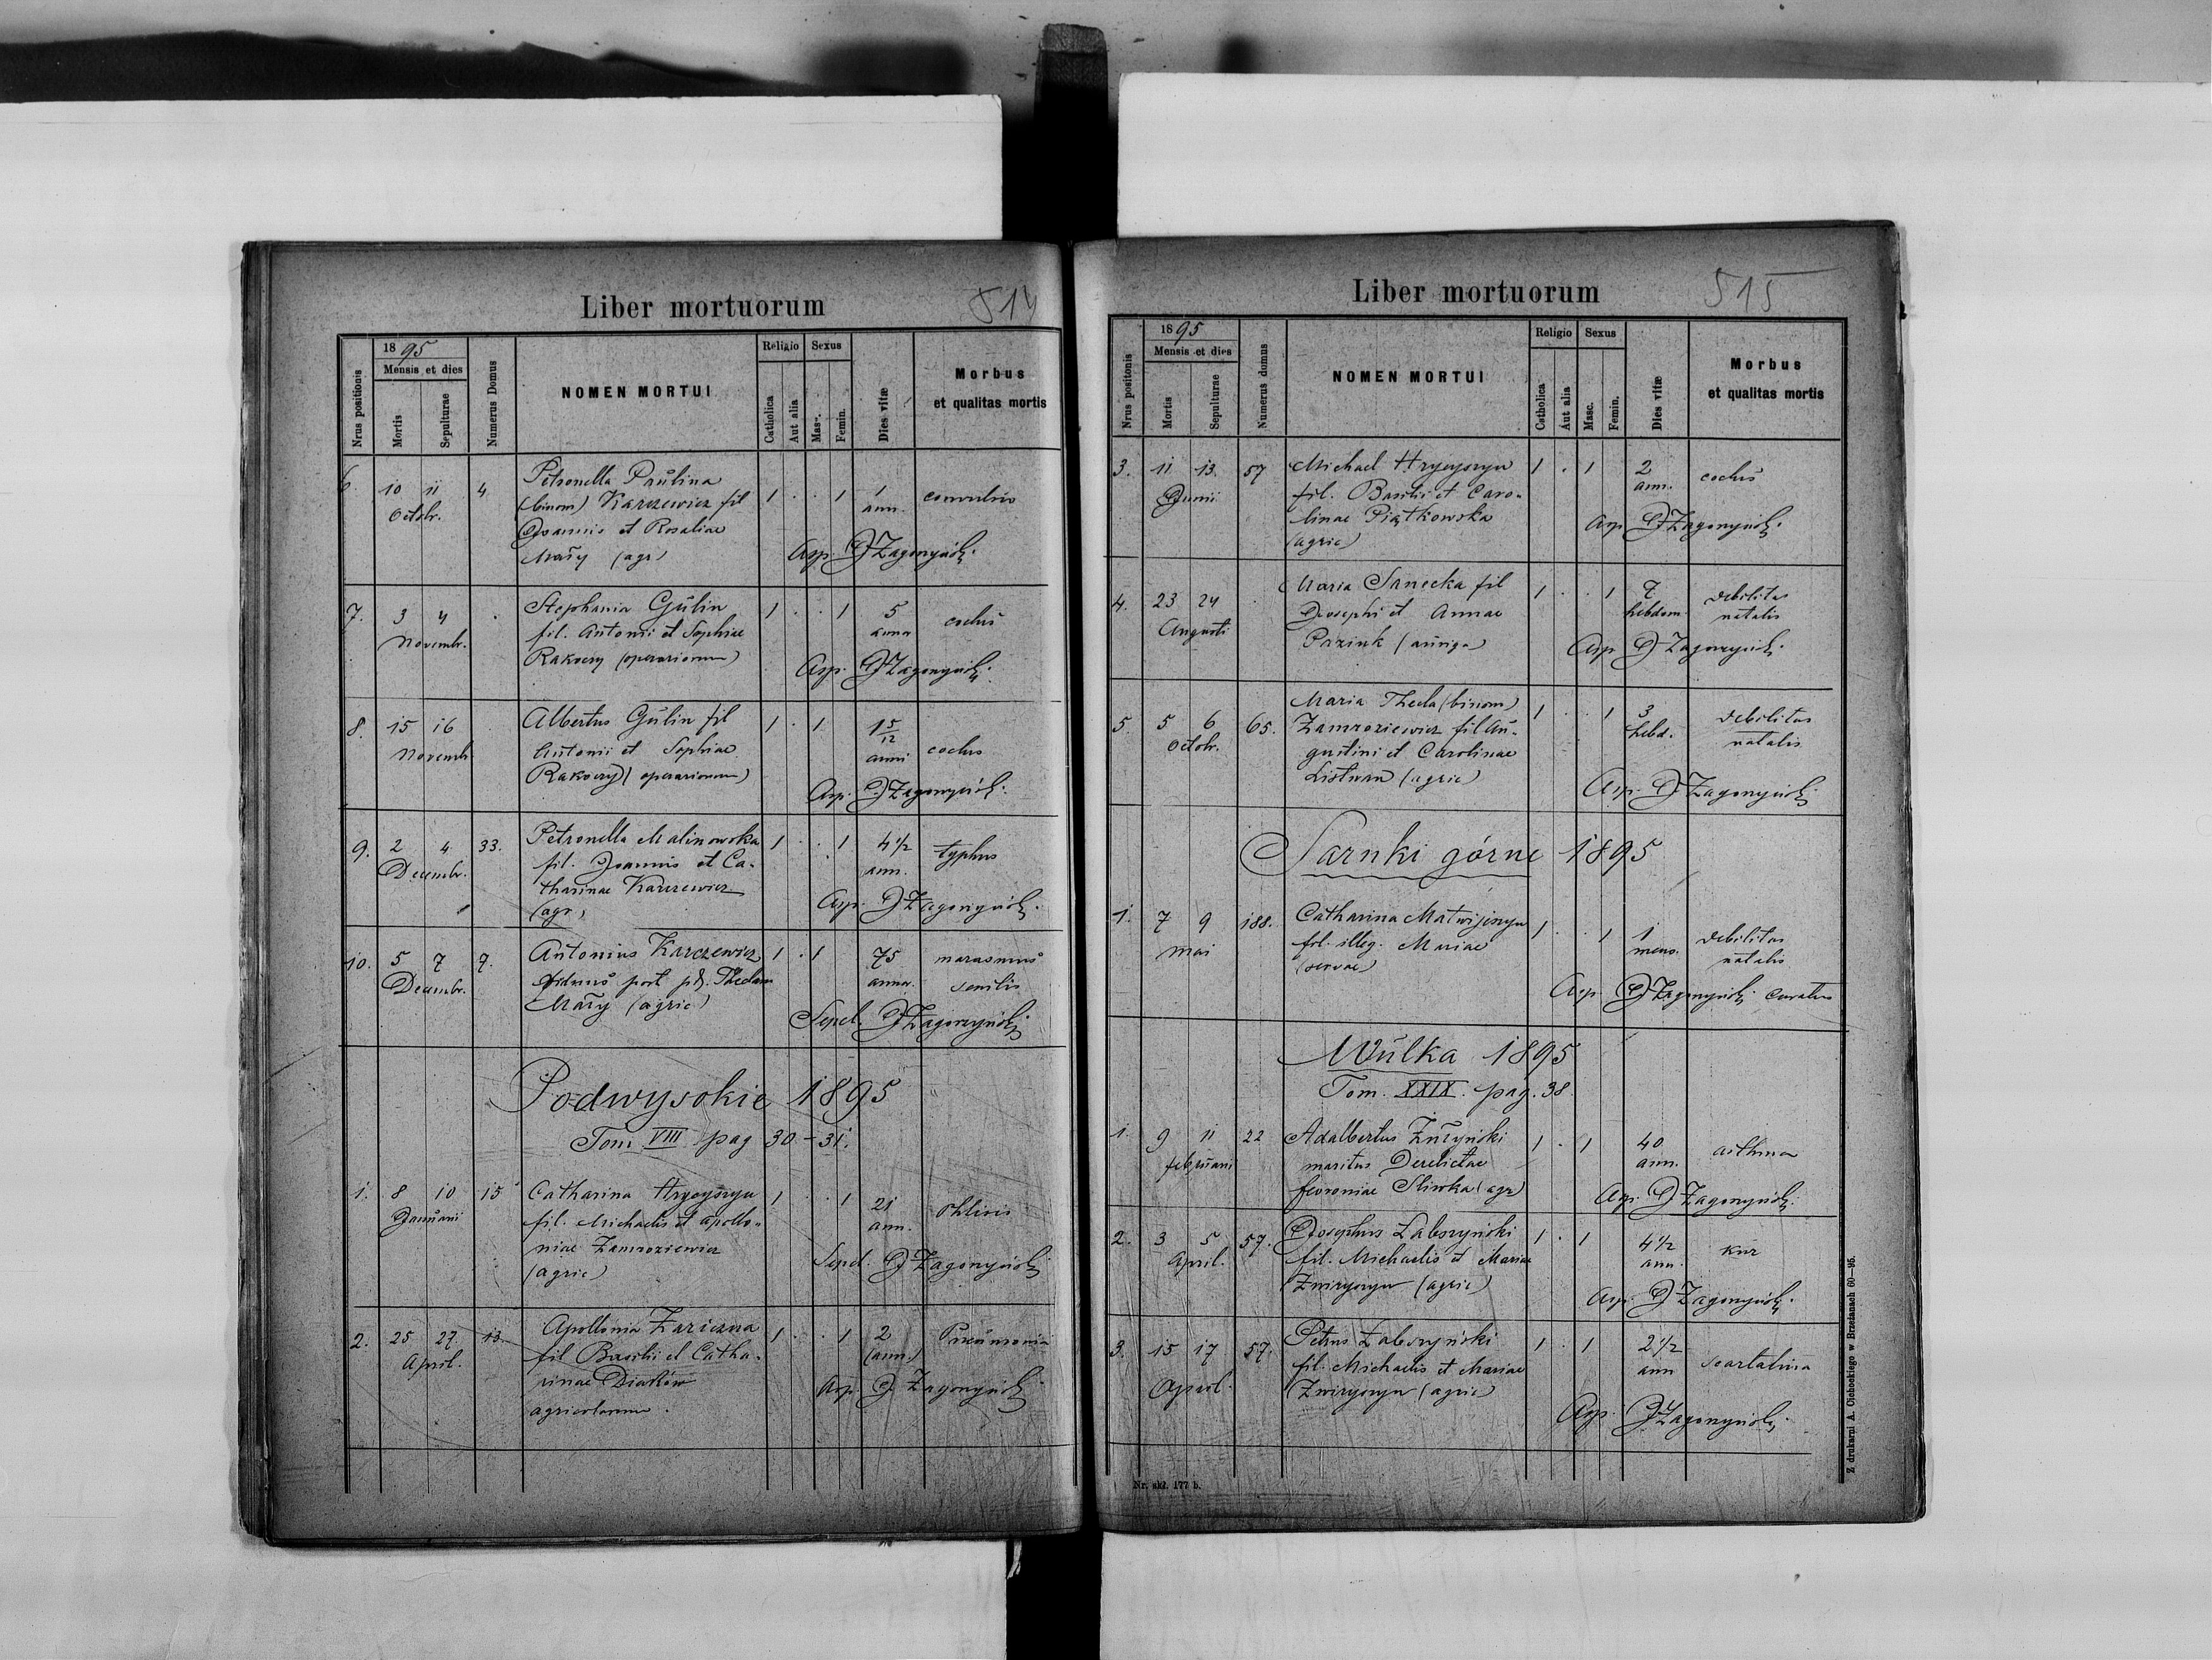 Liber mortuorum
514
Nrus positionis
1895
Mensis et dies
Mortis
Sepulturae
Numerus Domus
NOMEN MORTUI
Religio
Catholica
Aut alia
Sexus
Masc.
Femin.
Dies vitæ
Morbus
et qualitas mortis
6. 10 11 4. Petronella Paŭlina 1 . . 1 1 convulsio
Octobr. (binom) Karczewicz fil ann.
Joannis et Rosaliae
Mały (agr) Asp. J Zagorzyński
7. 3 4 . Stephania Gŭlin 1 . . 1 5 cochŭ
Novembr. fil. Antonii et Sophiae annor
Rakoczy (operariorum) Asp. J Zagorzyński
8. 15 16 Albertus Gŭlin fil 1 . 1 1 5/12 cochus
Novemb. Antonii et Sophiae anni
Rakoczy (operariorum) Asp. J Zagorzyński
9. 2 4 33. Petronella Malinowska 1 . . 1 4 1/2 typhus
Decembr. fil. Joannis et Ca- ann.
tharinae Karczewicz
(agr) Asp. J Zagorzyński
10. 5 7 7. Antonius Karczewicz 1 . 1 75 marasmus
Decembr. viduus post pd. Theclam annor. senilis
Mały (agric) Sepel. J Zagorzyński
Podwysokie 1895
Tom VIII pag 30-31.
1. 8 10 15 Catharina Hrycyszyn 1 . . 1 21 Phtisis
Januarii fil. Michaelis et Apollo- ann.
niae Zamroziewicz
(agric) Sepel. J Zagorzyński
2. 25 27. 13. Apollonia Zariczna 1 . . 1 2 Pneumonia
April. fil Basilii et Catha- (ann.)
rinae Diaków Asp. J Zagorzyński
agricolarum.
Liber mortuorum
515
Nrus positonis
1895
Mensis et dies
Mortis
Sepulturae
Numerus domus
NOMEN MORTUI
Religio
Catholica
Aut alia
Sexus
Masc.
Femin.
Dies vitæ
Morbus
et qualitas mortis
3. 11 13. 57 Michael Hrycyszyn 1 . 1 2 cochŭs
Junii fil. Basilii et Caro- ann.
linae Piątkowska Asp J Zagorzyński
(agric)
4. 23 24 Maria Sanecka fil 1 . . 1 7 debilitas
Augusti Josephi et Annae hebdom. natalis
(auriga) Asp J Zagorzyński
5 5 6 65. Maria Thecla (binom) 1 . . 1 3 debilitas
Octobr. Zamroziewicz fil Aŭ- hebd. natalis
gustini et Carolinae
Listwan (agric) Asp. J Zagorzyński
Sarnki górne 1895
1. 7 9 188. Catharina Matwijszyn 1 . . 1 1 debilitas
Mai fil. illeg. Mariae mens. natalis
(servae) Asp J Zagorzyński curatus
Wŭlka 1895
Tom. XXIX. pag. 38
1. 9 11 22 Adalbertus Zŭrzyński 1 . 1 40 asthma
februarii maritus Derelictae ann.
fevroniae Sliwka (agr) Asp. J Zagorzyński
2. 3 5 57. Josephus Labszyński 1 . 1 4 1/2 kur
April. fil. Michaelis et Mariae ann.
Zwirzszyn (agric) Asp. J Zagorzyński
3. 15 17 57. Petrus Labszyński 1 . 1 2 1/2 scarlatina
April. fil. Michaelis et Mariae ann
Zwirzszyn (agric)
Asp. J Zagorzyński
Nr. skł. 177 b.
Z drukarni A. Cichockiego w Brzeżanach 60—95.